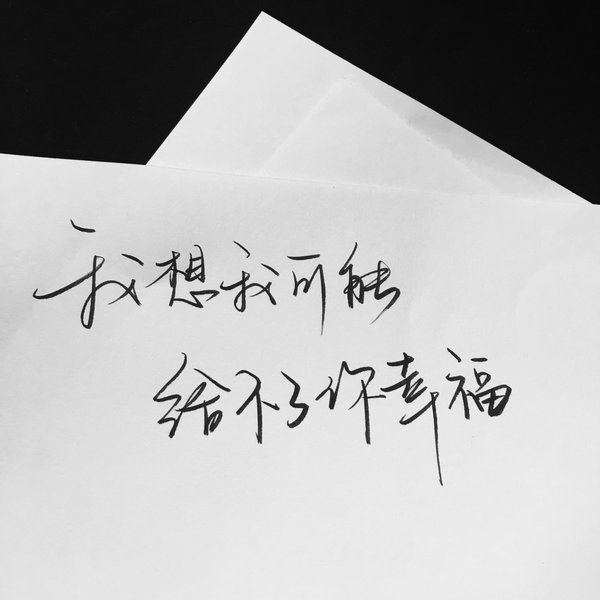 我想我可能
给不了你幸福